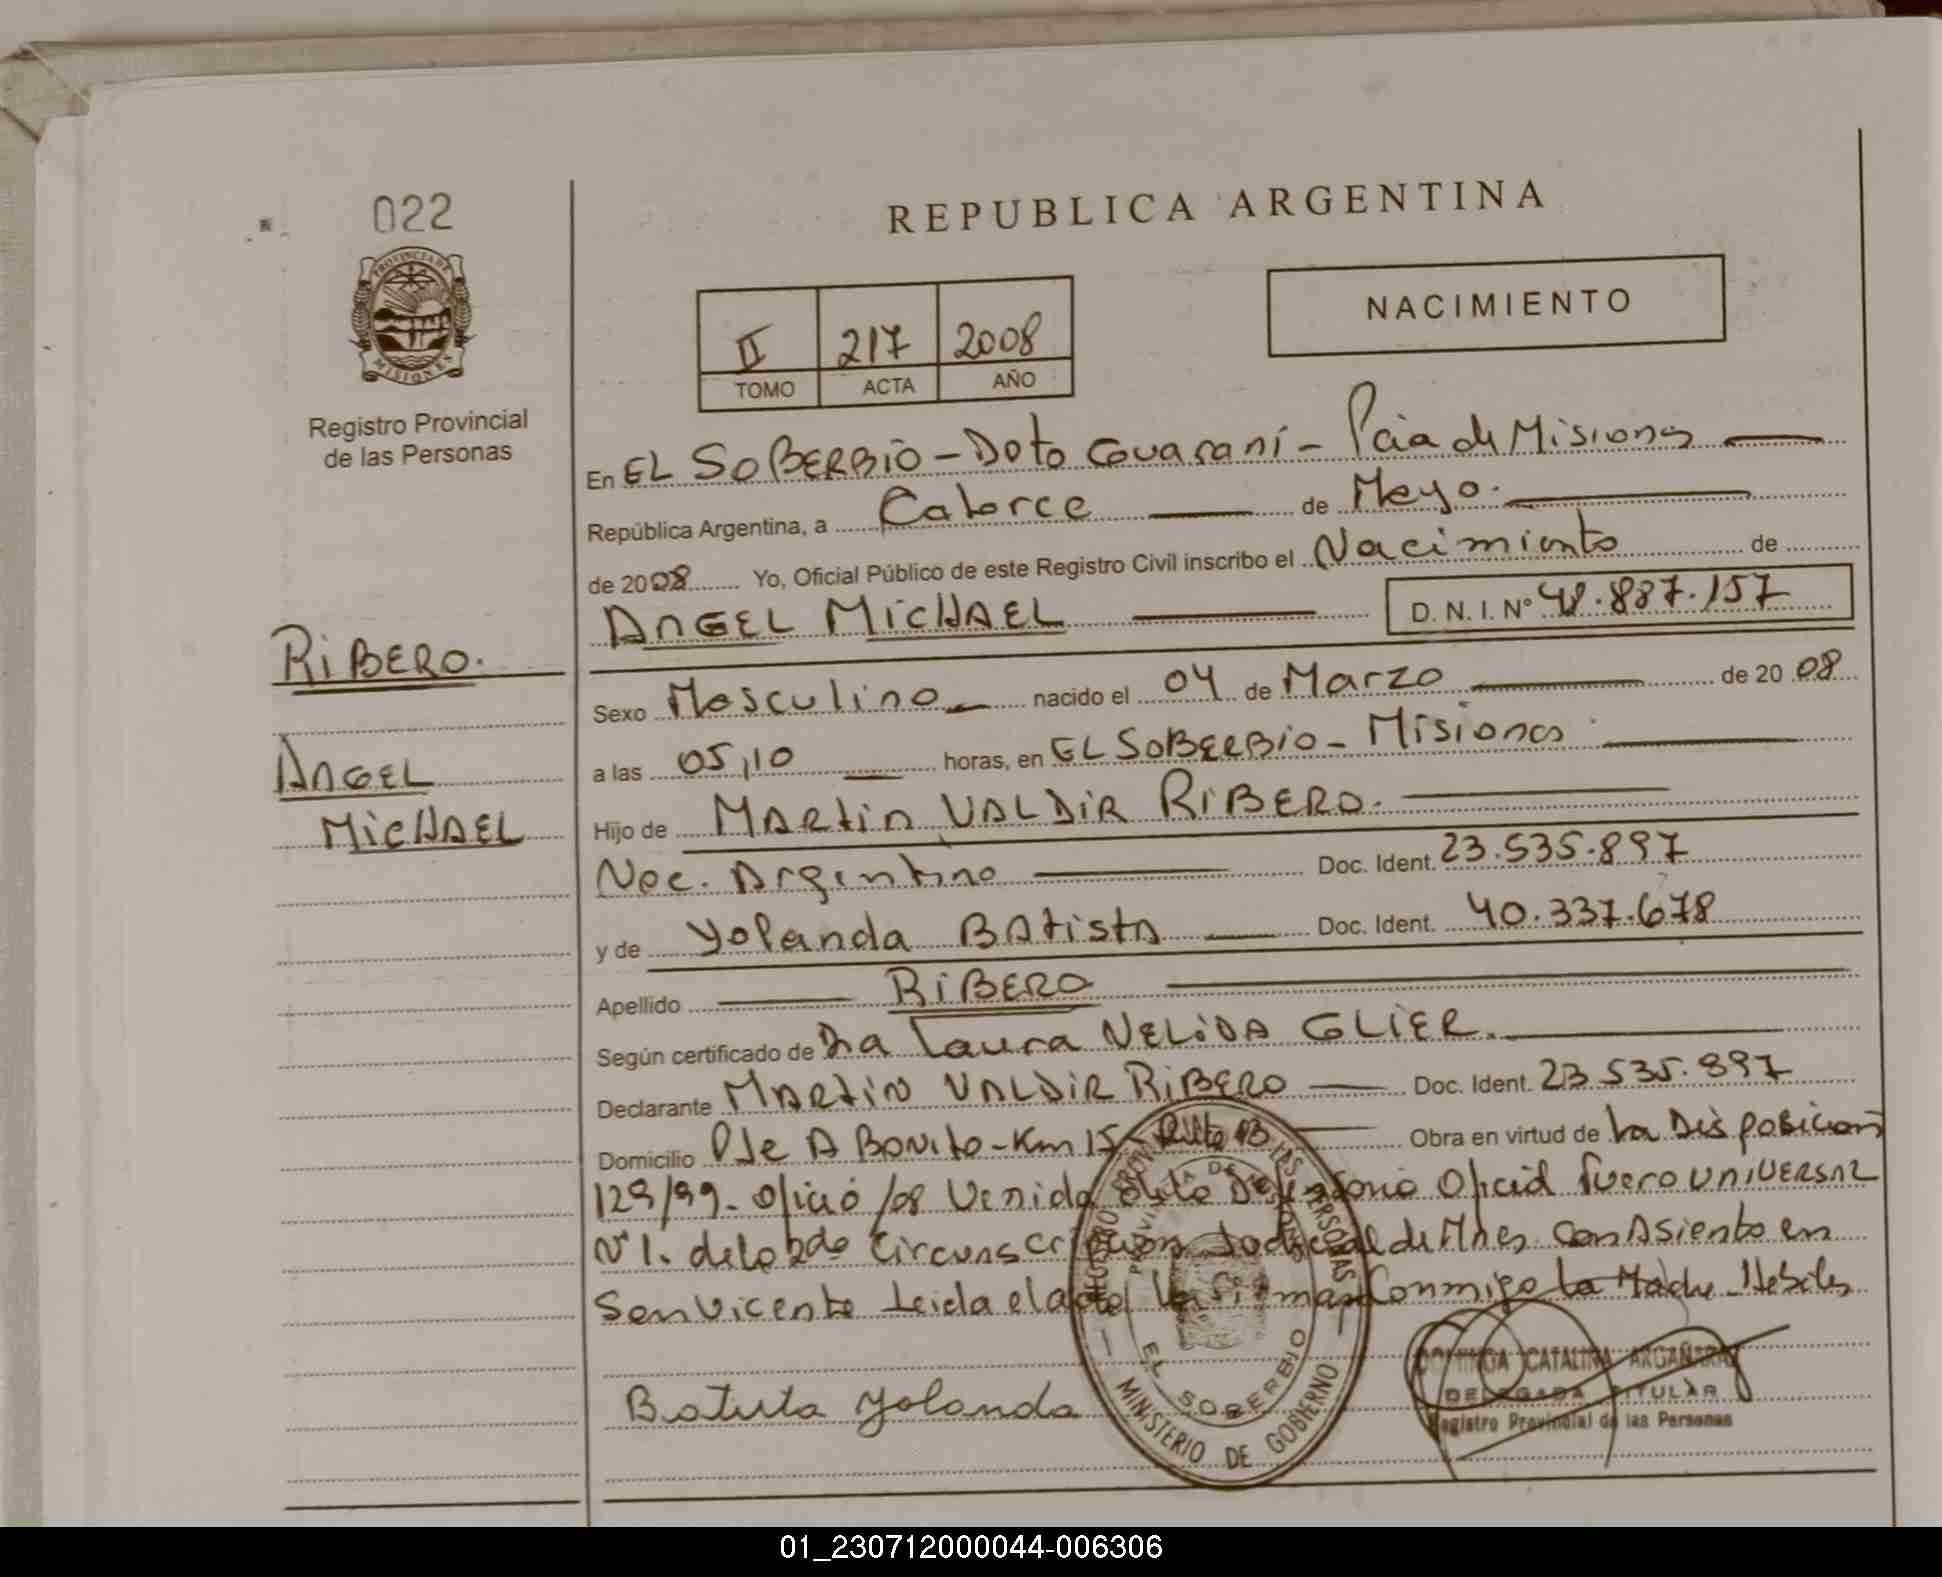 022
PROVINCIA DE
MISIONES
Registro Provincial
de las Personas
REPUBLICA ARGENTINA
NACIMIENTO
II 217 2008
TOMO ACTA AÑO
En EL SOBERBIO - Dpto Guaraní - Pcia de Misiones
República Argentina, a Catorce de Mayo.
de 2008 Yo, Oficial Público de este Registro Civil inscribo el Nacimiento de
ANGEL MICHAEL D. N. I. Nº 48.887.157
RIBERO.
ANGEL
MICHAEL
Sexo Masculino nacido el 04 de Marzo de 20 08
a las 05,10 horas, en EL SOBERBIO - Misiones
Hijo de MARTIN VALDIR RIBERO.
Nac. Argentino Doc. Ident. 23.535.897
y de Yolanda BATISTA Doc. Ident. 40.337.678
Apellido RIBERO
Según certificado de Dra Laura NELIDA GLIER.
Declarante MARTIN VALDIR RIBERO Doc. Ident. 23.535.897
Domicilio Pje A Bonito - Km 15 - Ruta 13 Obra en virtud de La Disposición
129/99 - Oficio /08 Venida de la Defensoria Oficial Fuero UNIVERSAL
Nº 1. de la 2da Circunscripción Judicial de Mnes con Asiento en
San Vicente Leida el acta la firman Conmigo La Madre
Batista Yolanda
REGISTRO PROVINCIAL DE LAS PERSONAS
PROVINCIA DE MISIONES
EL SOBERBIO
MINISTERIO DE GOBIERNO
CATALINA
DELEGADA TITULAR
Registro Provincial de las Personas
01_230712000044-006306